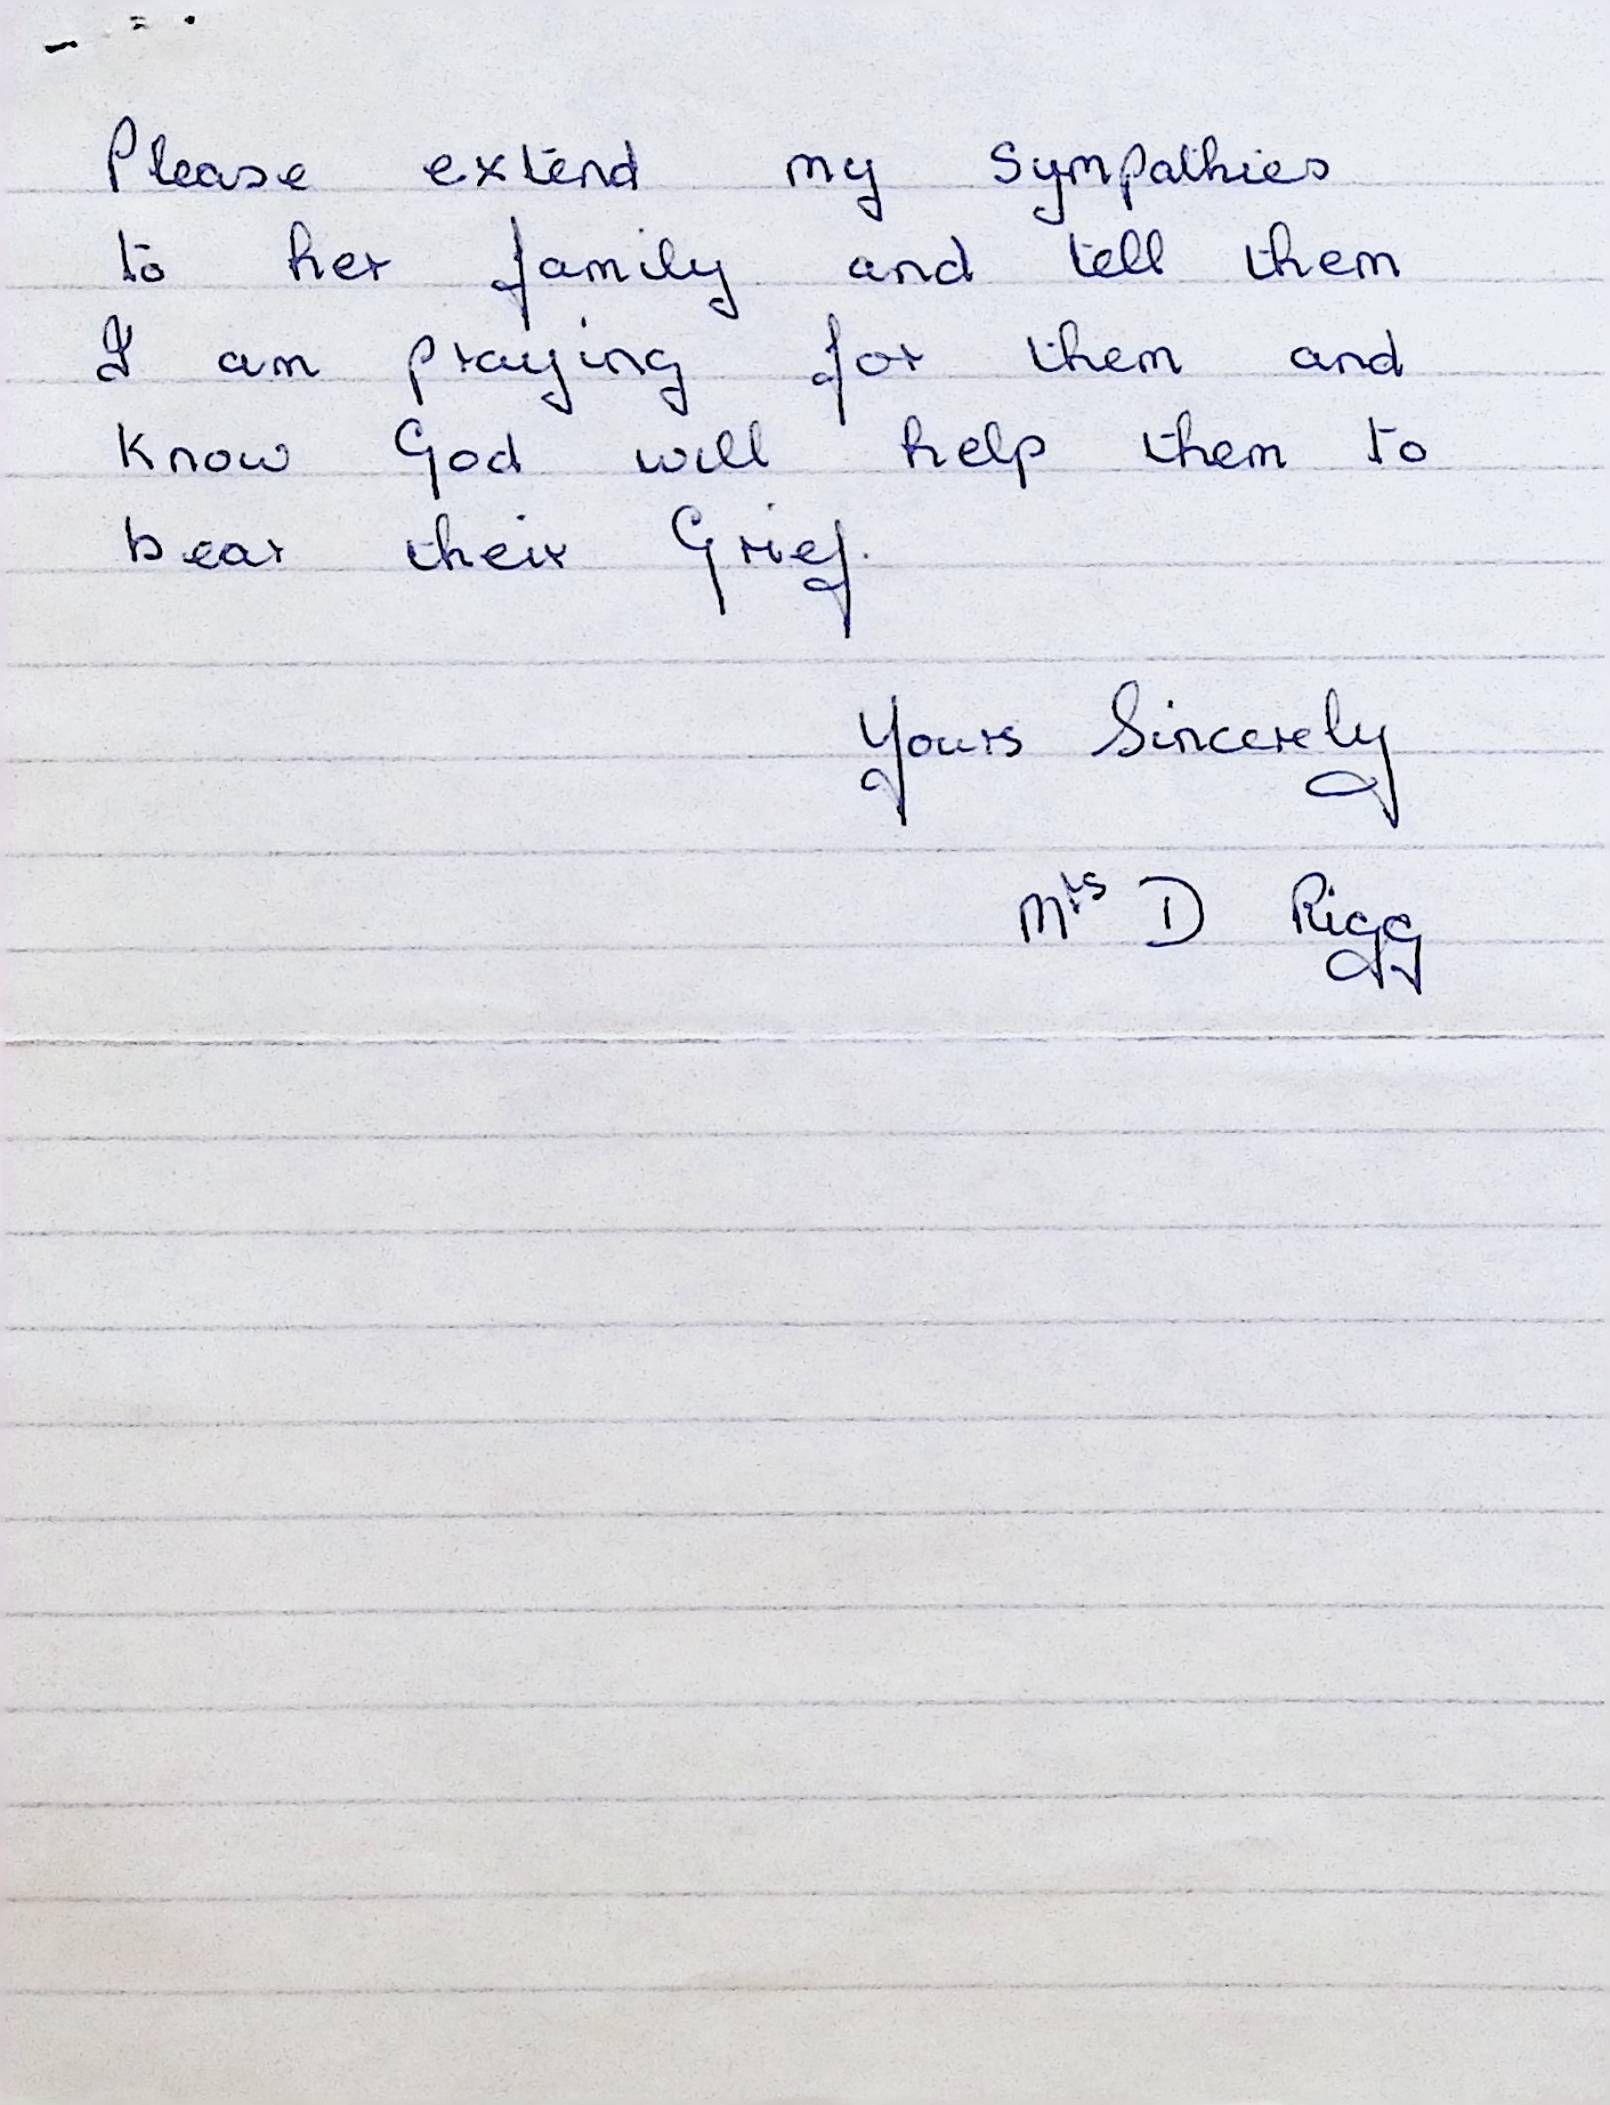 Please extend my sympathies
to her family and tell them
I am praying for them and
know God will help them to
bear their Grief.
Yours Sincerely
Mrs D Rigg